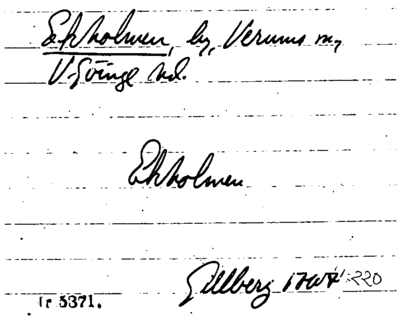 Ekholmen, by, Verums sn,
V. Göinge hd.
Ekholmen
Gillberg 220
Ir 3371.